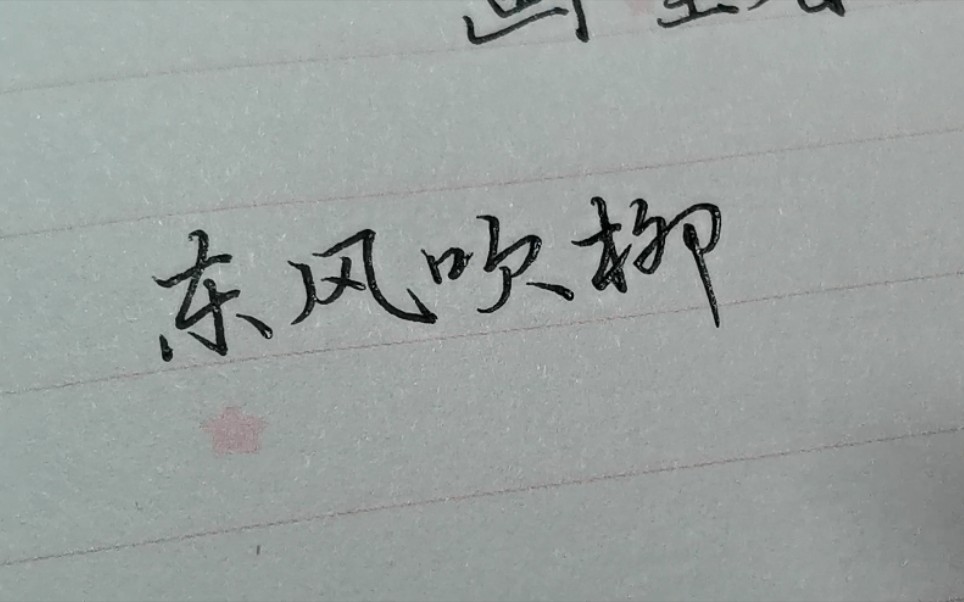 东风吹柳